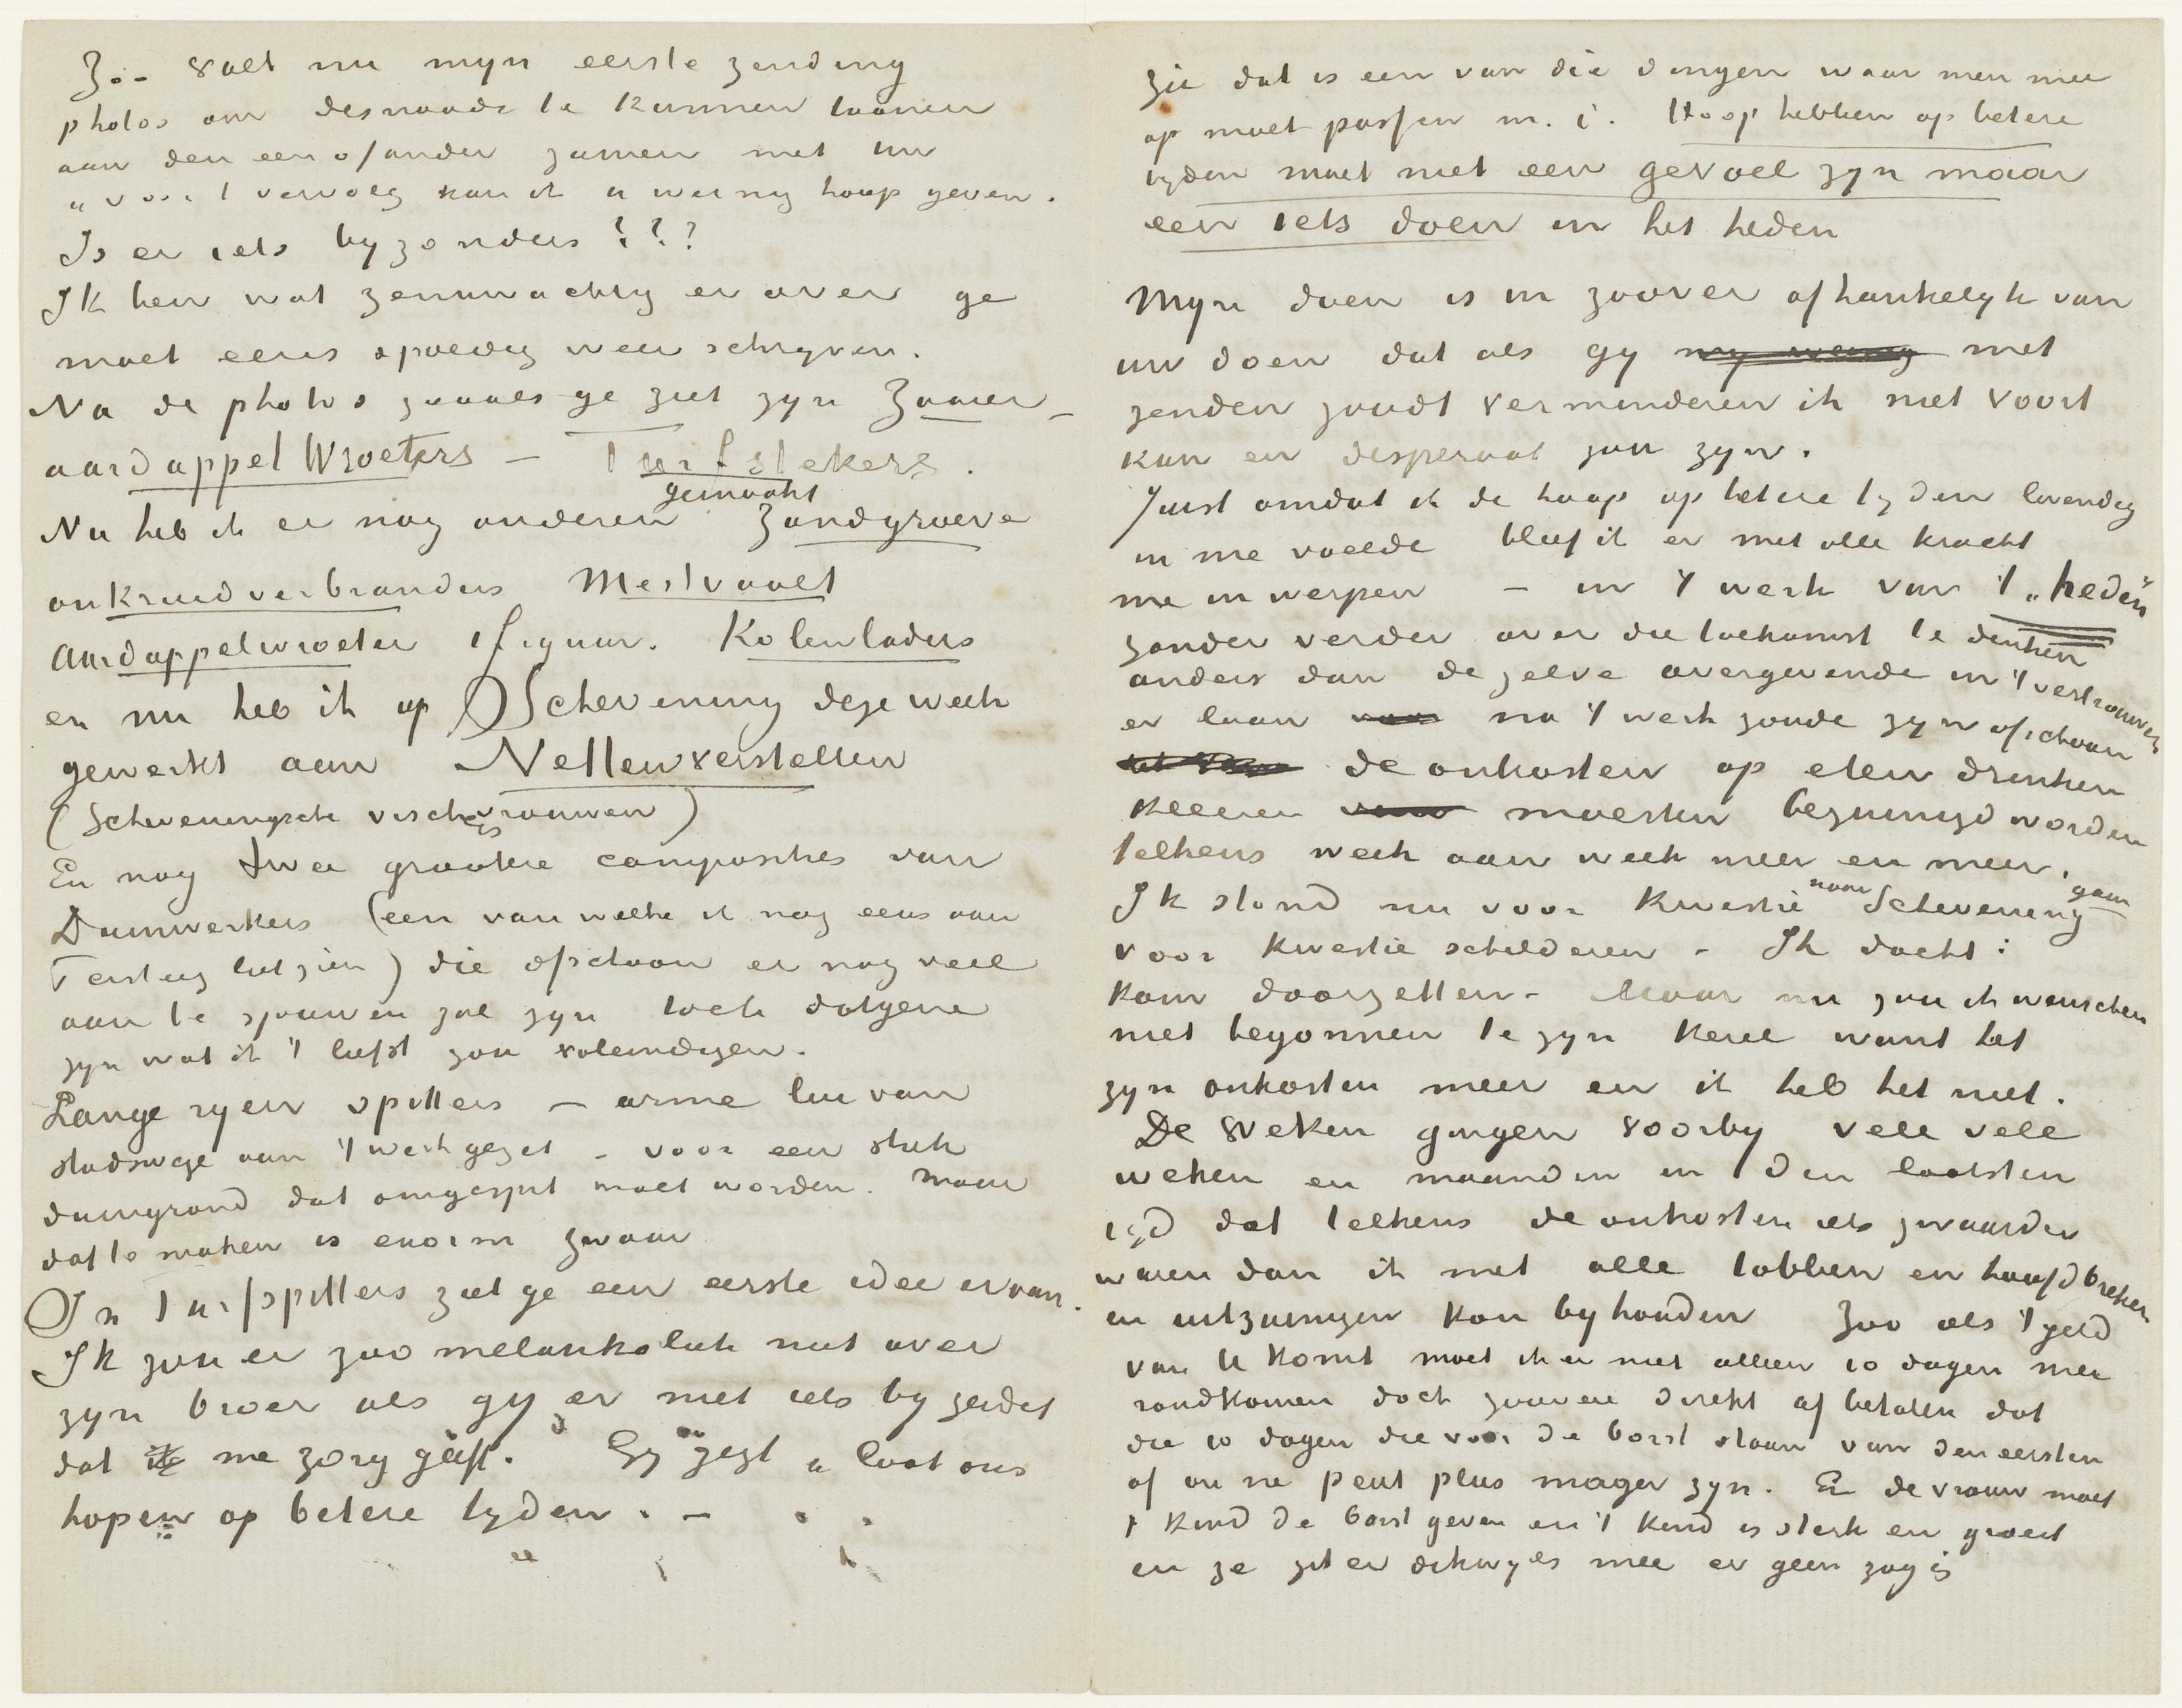 Zoo valt nu mijn eerste zending
photos om desnoods te kunnen toonen
aan den een of ander zamen met uw
„voor 't vervolg kan ik u weinig hoop geven.
Is er iets byzonders???
Ik ben wat zenuwachtig er over ge
moet eens spoedig weer schryven.
Nu de photos zooals ge ziet zyn Zaaier –
aardappel Wroeters – Turfstekers.
Nu heb ik er nog anderen gemaakt Zandgroeve
onkruidverbranders Mestvaalt
Aardappelwroeter 1 figuur. Kolenladers
en nu heb ik op Schevening deze week
gewerkt aan Nettenverstellen
(Scheveningsche visschersvrouwen)
En nog twee grootere composities van
Duinwerkers (een van welke ik nog eens aan
Tersteeg liet zien) die ofschoon er nog veel
aan te sjouwen zal zyn toch datgene
zyn wat ik 't liefst zou voleindigen.
Lange ryen spitters – arme lui van
stadswege aan 't werk gezet – voor een stuk
duingrond dat omgespit moet worden. Maar
dat te maken is enorm zwaar
In Turfspitters ziet ge een eerste idee ervan.
Ik zou er zoo melankoliek niet over
zyn broer als gy er niet iets by zeidet
dat me zorg geeft. Gy zegt „laat ons
hopen op betere tyden. –
Zie dat is een van die dingen waar men mee
op moet passen m.i. Hoop hebben op betere
tyden moet niet een gevoel zyn maar
een iets doen in het heden
Myn doen is in zoover afhankelyk van
uw doen dat als gy my weinig met
zenden zoudt verminderen ik niet voort
kan en desperaat zou zyn.
Juist omdat ik de hoop op betere tyden levendig
in me voelde bleef ik er met alle kracht
me in werpen – in 't werk van 't „heden"
zonder verder over die toekomst te denken
anders dan de zelve overgevende in 't vertrouwen
er loon voor na 't werk zoude zyn ofschoon
de onkosten op eten drinken
kleeren moesten bezuinigd worden
telkens week aan week meer en meer.
Ik stond nu voor kwestie naar Schevening gaan
voor kwestie schilderen – Ik dacht:
kom doorzetten – Maar nu zou ik wenschen
niet begonnen te zyn kerel want het
zyn onkosten meer en ik heb het niet.
De weken gingen voorby vele vele
weken en maanden in den laatsten
tyd dat telkens de onkosten iets zwaarder
waren dan ik met alle tobben en hoofdbreken
en uitzuinigen kon byhouden Zoo als 't geld
van U komt moet ik er niet alleen 10 dagen mee
rondkomen doch zooveel direkt af betalen dat
die 10 dagen die voor de borst staan van den eersten
af on ne peut plus mager zyn. En de vrouw moet
't kind de borst geven en 't kind is sterk en groeit
en ze zit er dikwyls mee er geen zog is